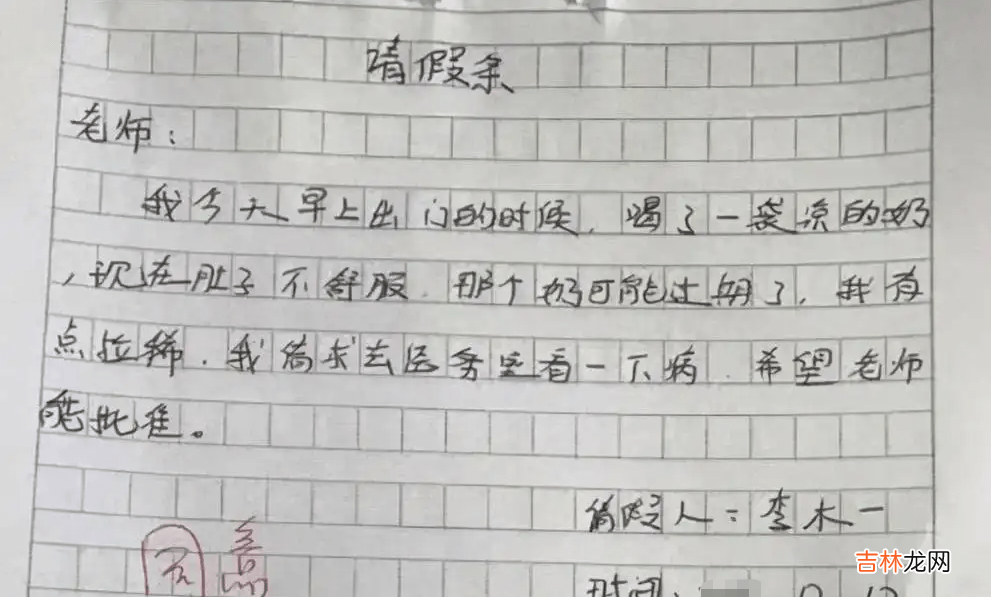 请假条
老师：
我今天早上出门的时候，喝了一袋凉的奶
，现在肚子不舒服．那个奶可能过期了，我有
点拉稀．我请求去医务室看一下病．希望老师
能批准。
请假人：李木一
同意
时间：
吉林龙网